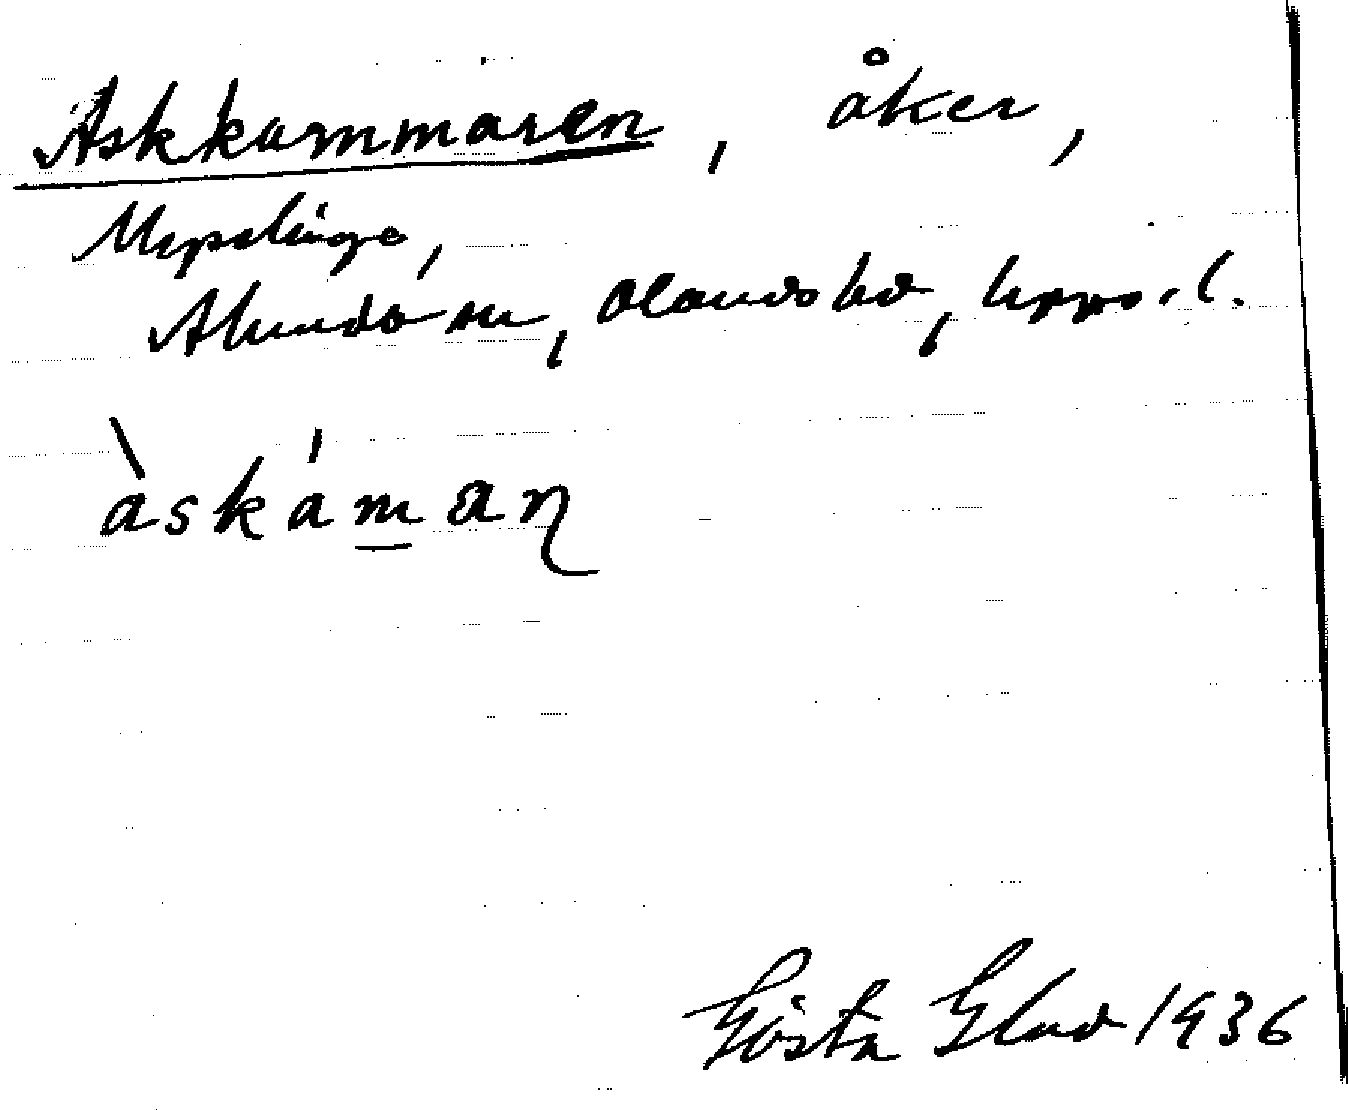 Askkammaren, åker,
Alunda sn, Olands hd, Upps. l.
àskáman
Gösta Glad 1936